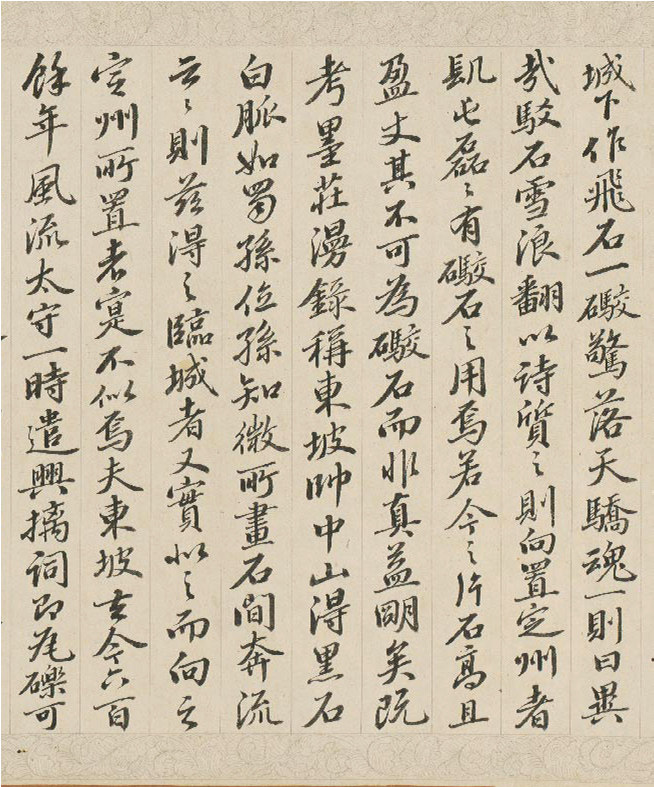 城下作飛石一礮驚落天驕魂一則曰異
哉駮石雪浪翻以詩質之則向置定州者
凱此磊〻有礮石之用焉若今之片石高且
盈丈其不可為礮石而非真益明矣既
考墨莊漫錄稱東坡帥中山得黑石
白脈如蜀孫位孫知微所畫石間奔流
云〻則茲得之臨城者又實似之而向之
定州所置者寔不似焉夫東坡去今六百
餘年風流太守一時遣興摛詞即瓦礫可